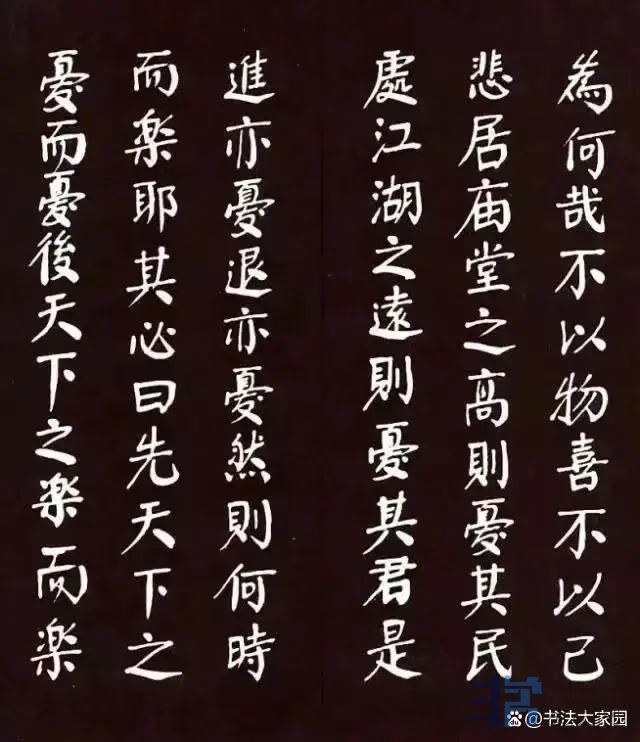 為何哉不以物喜不以己
悲居庙堂之高則憂其民
處江湖之遠則憂其君是
進亦憂退亦憂然則何時
而楽耶其必曰先天下之
憂而憂後天下之楽而楽
@书法大家园